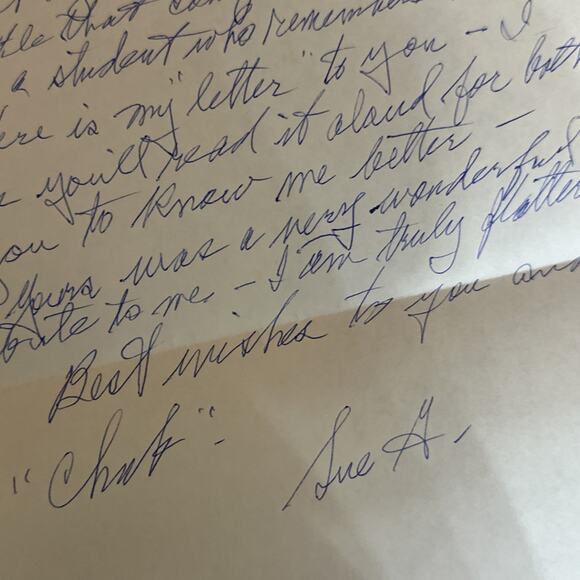 that
a student who remembers
ere is my "letter" to you - I
you'll read it aloud for both
you to know me better -
Yours was a very wonderful
bute to me - I am truly flatter
Best wishes to you and
"Chub". Sue H.